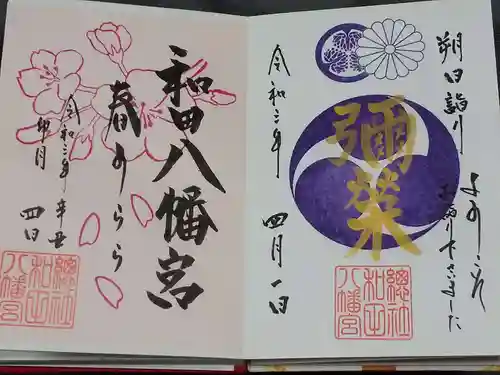 朔日詣り
ようこそ
お参り下さいました
彌榮
令和三年 四月一日
總社
和田
八幡宮
和田八幡宮
春うらら
令和三年 辛丑
卯月 四日
總社
和田
八幡宮